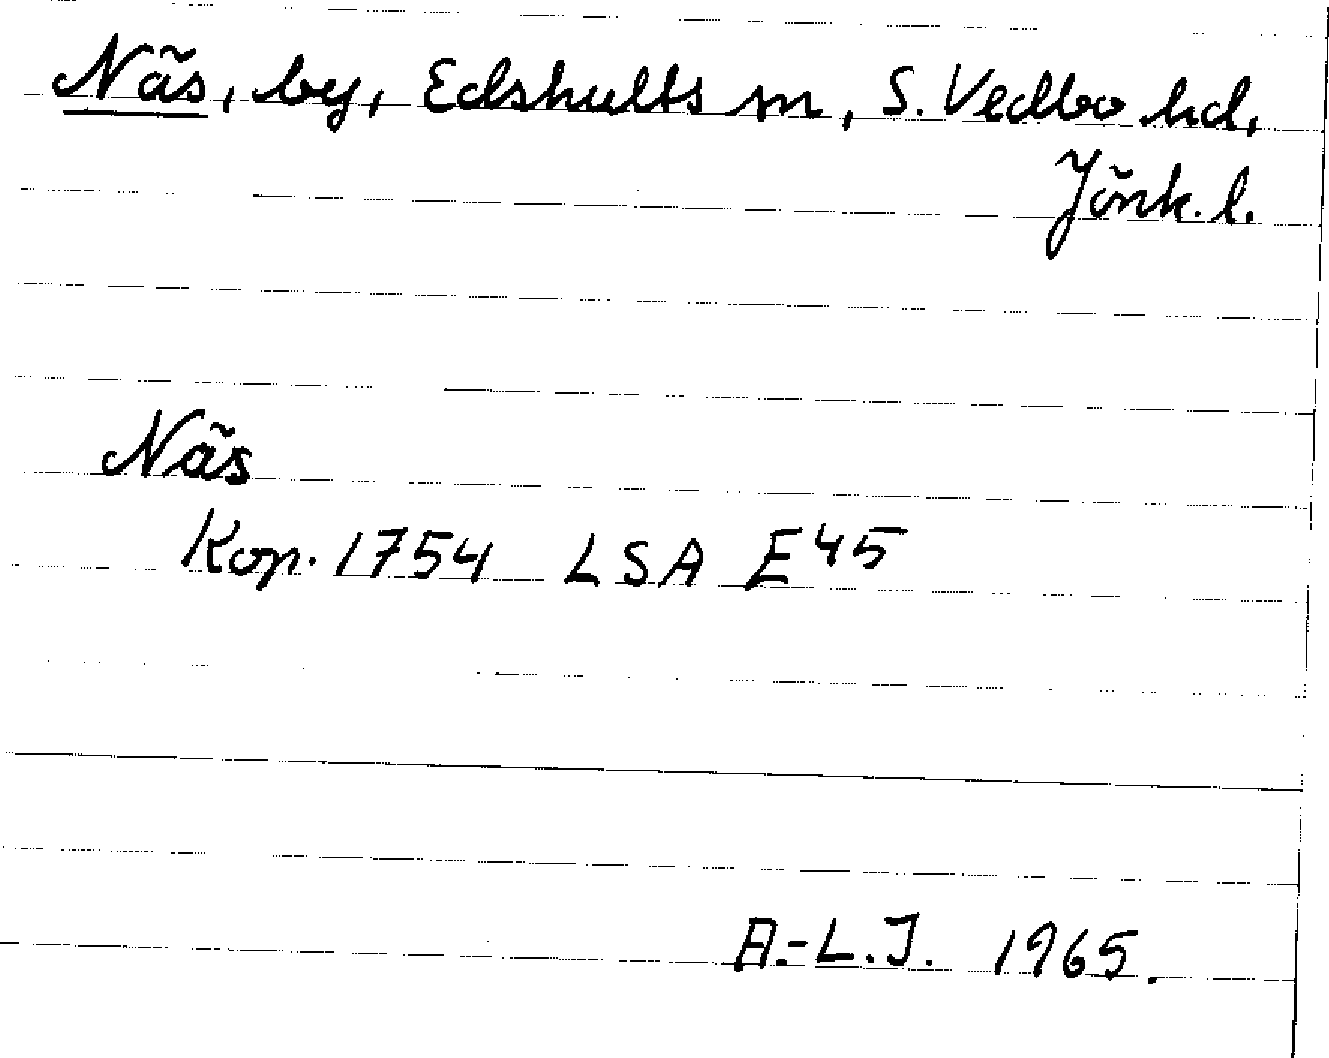 Näs, by, Edshults sn, S. Vedbo hd,
Jönk. l.
Näs
Kop. 1754 LSA E45
A.-L.J. 1965.